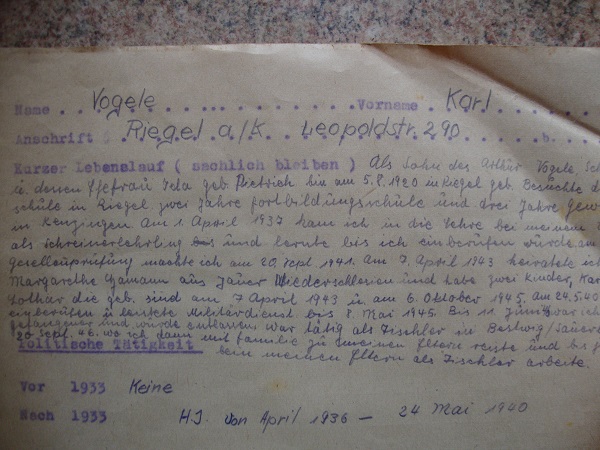 Name . . Vogele . . . . . . . . . . . . Vorname . Karl
Anschrift Riegel a/K. Leopoldstr. 290 b.
Kurzer Lebenslauf ( sachlich bleiben ) Als Sohn des Arthur Vogele, Sch
u. dessen Ehefrau Ida geb. Dietrich bin am 5.8.1920 in Riegel geb. Besuchte d
schule in Riegel zwei Jahre fortbildungsschule und drei Jahre Gew
in Kenzingen Am 1. April 1937 kam ich in die Lehre bei meinem
als Schreinerlehrling und lernte bis ich einberufen würde am
Gesellenprüfung machte ich am 20. Sept 1941. Am 7. April 1943 heiratete ic
Margarethe aus Jauer Niederschlesien und habe zwei Kinder, Kar
Lothar die geb. sind am 7 April 1943 u. am 6. Oktober 1945. Am 24.5.40
einberufen u. leistete Militärdienst bis 8. Mai 1945. Bis 11 Juni war ich
gefangener und würde entlassen war tätig als Tischler in Bestwig/Sauer
20 Sept. 46. wo ich dann mit Familie zu meinen Eltern reiste und bis
Politische Tätigkeit bein meinen Eltern als Tischler arbeite.
Vor 1933 Keine
Nach 1933 H.J. von April 1936 – 24 Mai 1940